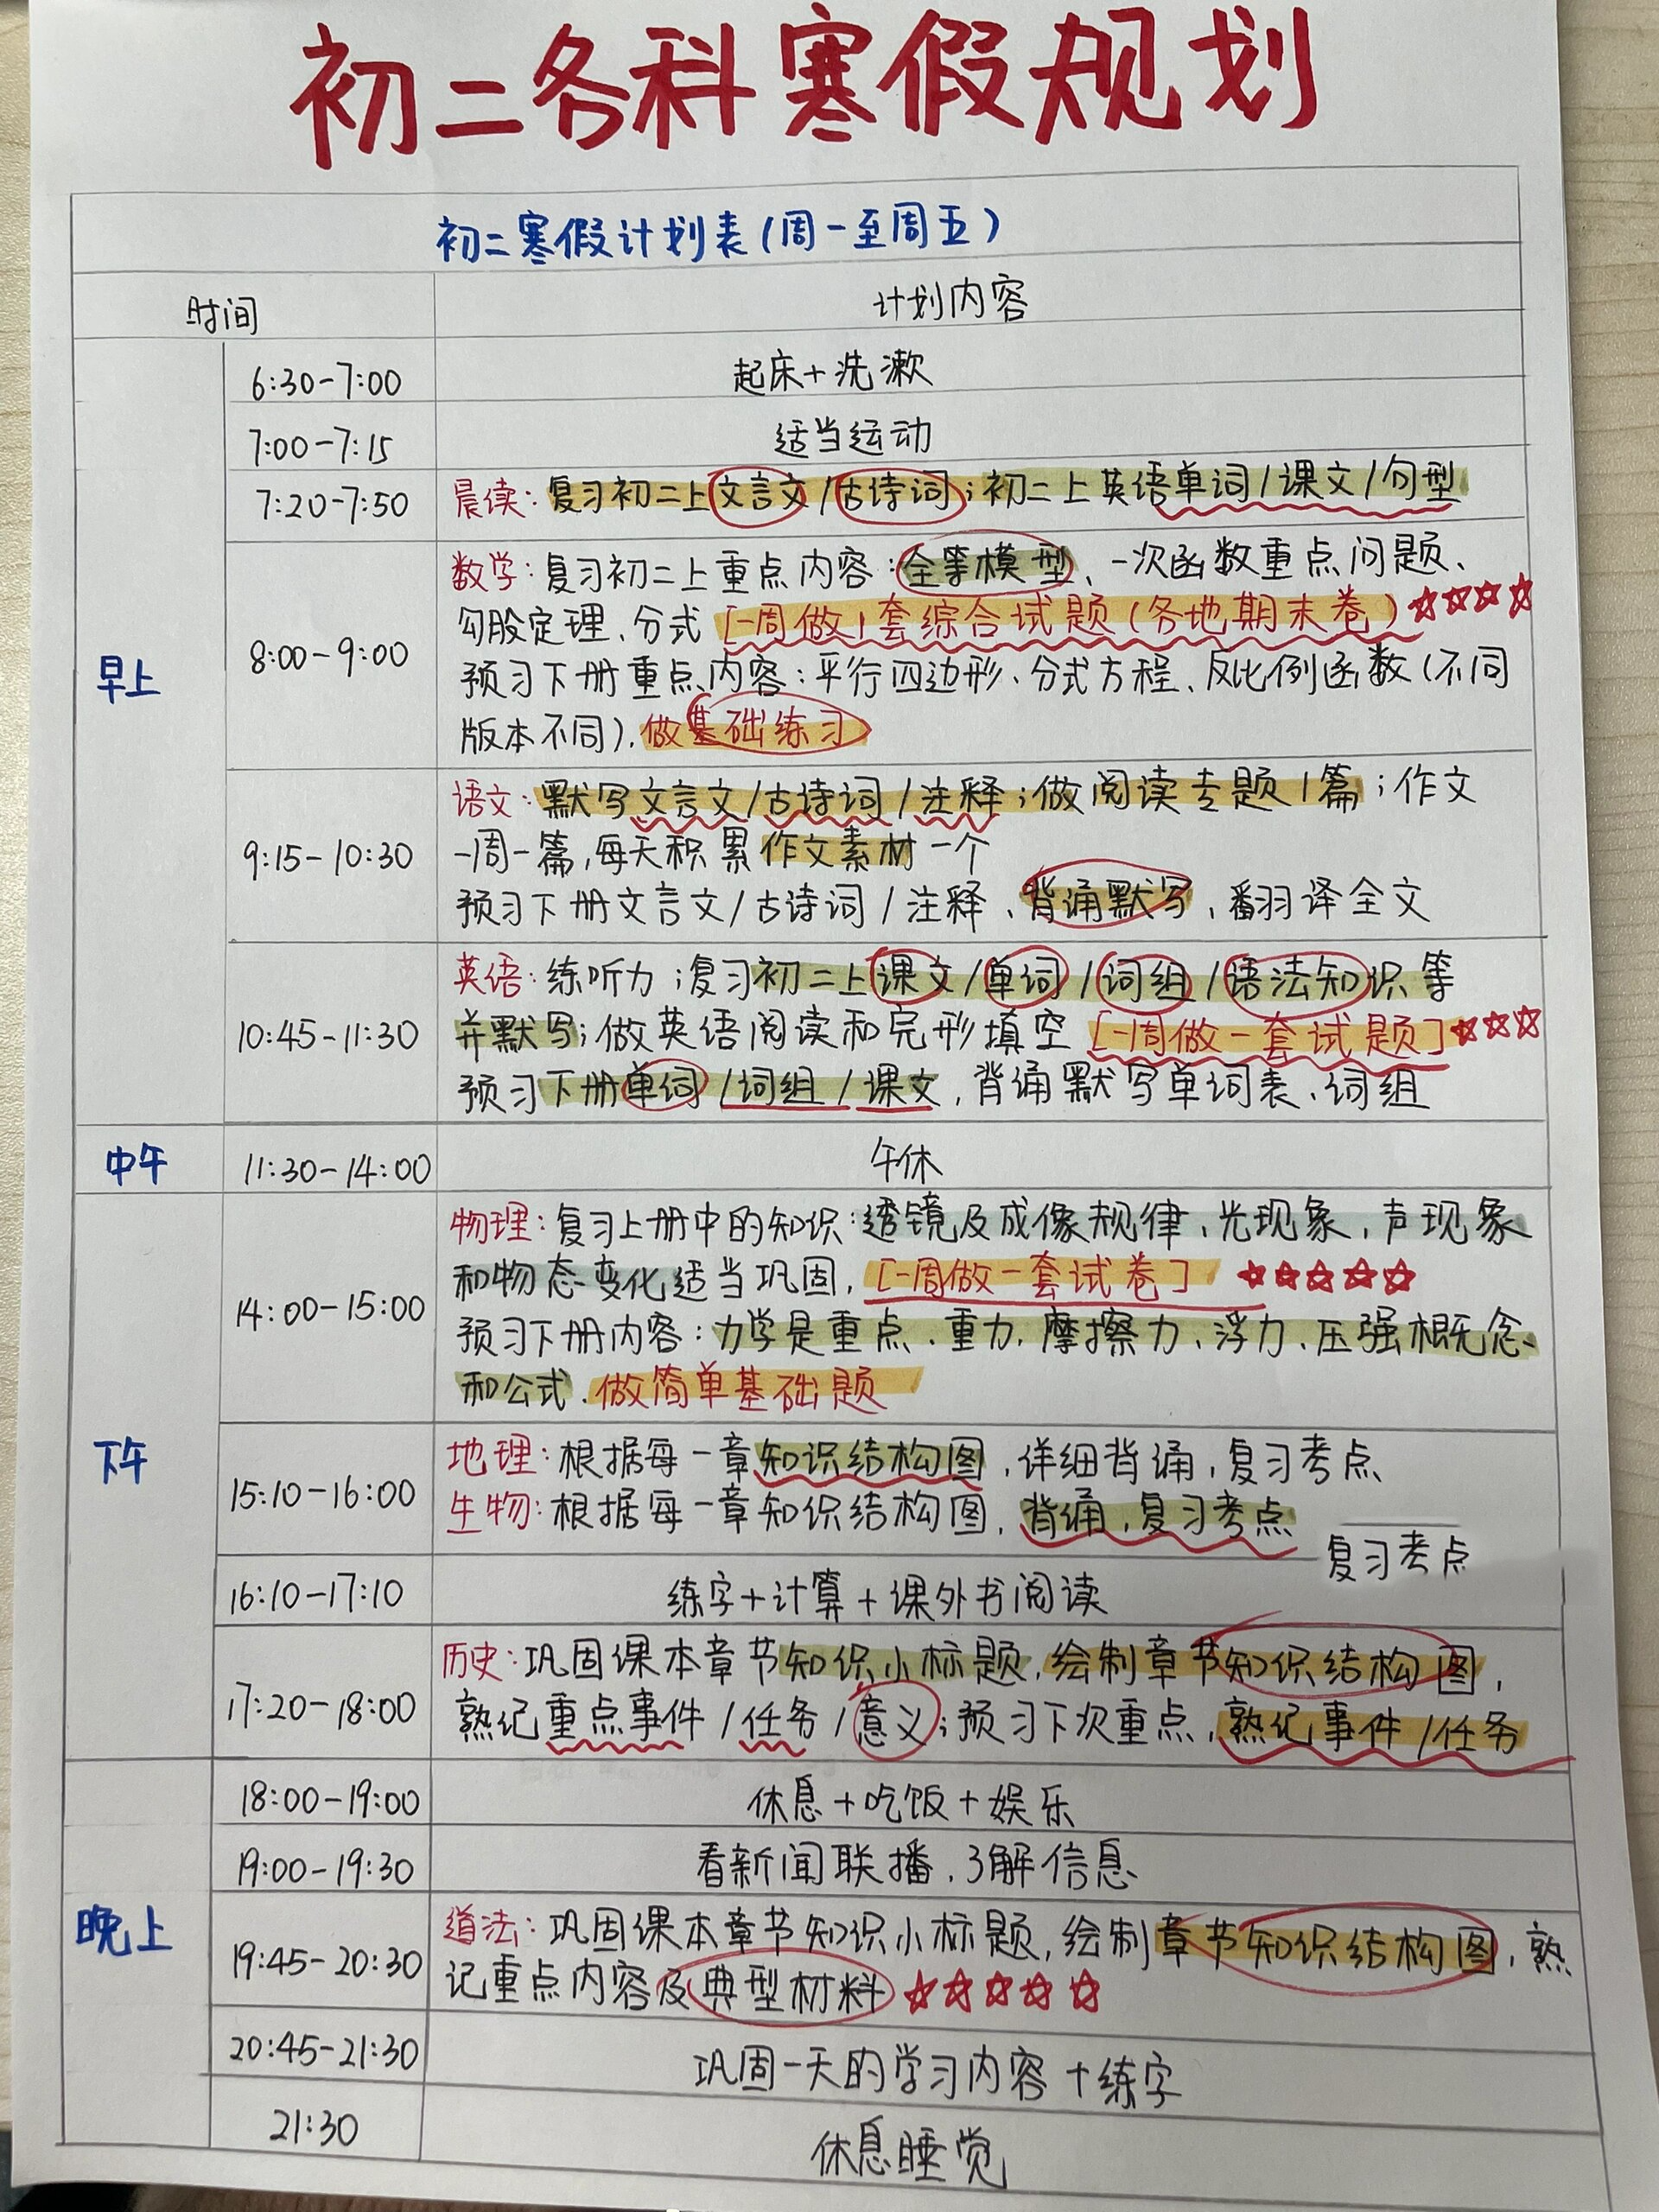 初二各科寒假规划
初二寒假计划表(周一至周五)
时间 计划内容
早上
6:30-7:00 起床+洗漱
7:00-7:15 适当运动
7:20-7:50 晨读:复习初二上文言文/古诗词;初二上英语单词/课文/句型
8:00-9:00
数学:复习初二上重点内容:全等模型、一次函数重点问题、
勾股定理、分式[一周做1套综合试题(各地期末卷)☆☆☆☆
预习下册重点内容:平行四边形、分式方程、反比例函数(不同
版本不同).做基础练习
9:15-10:30
语文:默写文言文/古诗词/注释;做阅读专题1篇;作文
一周一篇,每天积累作文素材一个
预习下册文言文/古诗词/注释、背诵默写、翻译全文
10:45-11:30
英语:练听力;复习初二上课文/单词/词组/语法知识等
并默写;做英语阅读和完形填空[一周做一套试题]☆☆☆
预习下册单词/词组/课文,背诵默写单词表、词组
中午 11:30-14:00 午休
下午
14:00-15:00
物理:复习上册中的知识:透镜及成像规律、光现象,声现象
和物态变化适当巩固,[一周做一套试卷]☆☆☆☆☆
预习下册内容:力学是重点、重力,摩擦力、浮力、压强概念、
和公式.做简单基础题
15:10-16:00
地理:根据每一章知识结构图,详细背诵,复习考点
生物:根据每一章知识结构图,背诵,复习考点
复习考点
16:10-17:10 练字+计算+课外书阅读
17:20-18:00
历史:巩固课本章节知识小标题,绘制章节知识结构图,
熟记重点事件/任务/意义;预习下次重点,熟记事件/任务
晚上
18:00-19:00 休息+吃饭+娱乐
19:00-19:30 看新闻联播,了解信息
19:45-20:30
道法:巩固课本章节知识小标题,绘制章节知识结构图,熟
记重点内容及典型材料☆☆☆☆☆
20:45-21:30 巩固一天的学习内容+练字
21:30 休息睡觉